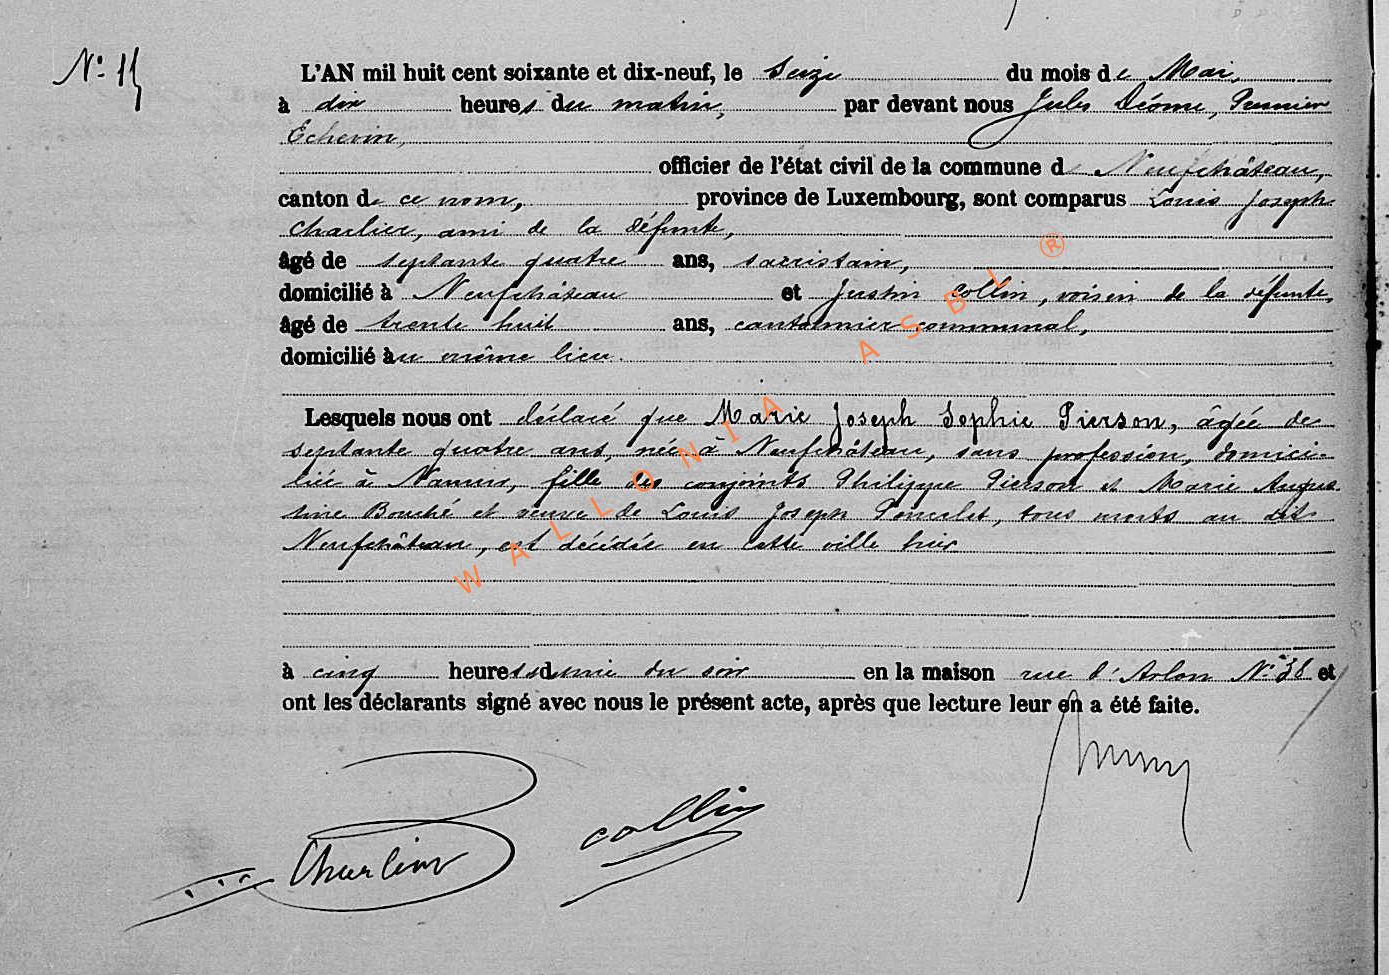 N° 15
L'AN mil huit cent soixante et dix-neuf, le Seize du mois de Mai,
à dix heures du matin, par devant nous Jules Déome, Premier
Echevin,
officier de l'état civil de la commune d Neufchâteau,
canton de ce nom, province de Luxembourg, sont comparus Louis Joseph
Charlier, ami de la défunte,
âgé de septante quatre ans, sacristain,
domicilié à Neufchâteau et Justin Collin, voisin de la défunte,
âgé de trente huit ans, cantonnier communal,
domicilié au même lieu.
Lesquels nous ont déclaré que Marie Joseph Sophie Pierson, âgée de
septante quatre ans, née à Neufchâteau, sans profession, domici-
liée à Namur, fille des conjoints Philippe Pierson et Marie Augus-
tine Bouché et veuve de Louis Joseph Poncelet, tous morts au dit
Neufchâteau, est décédée en cette ville hier
à cinq heures demie du soir en la maison rue d'Arlon N° 38 et
ont les déclarants signé avec nous le présent acte, après que lecture leur en a été faite.
Charlier
Collin
WALLONIA ASBL ®